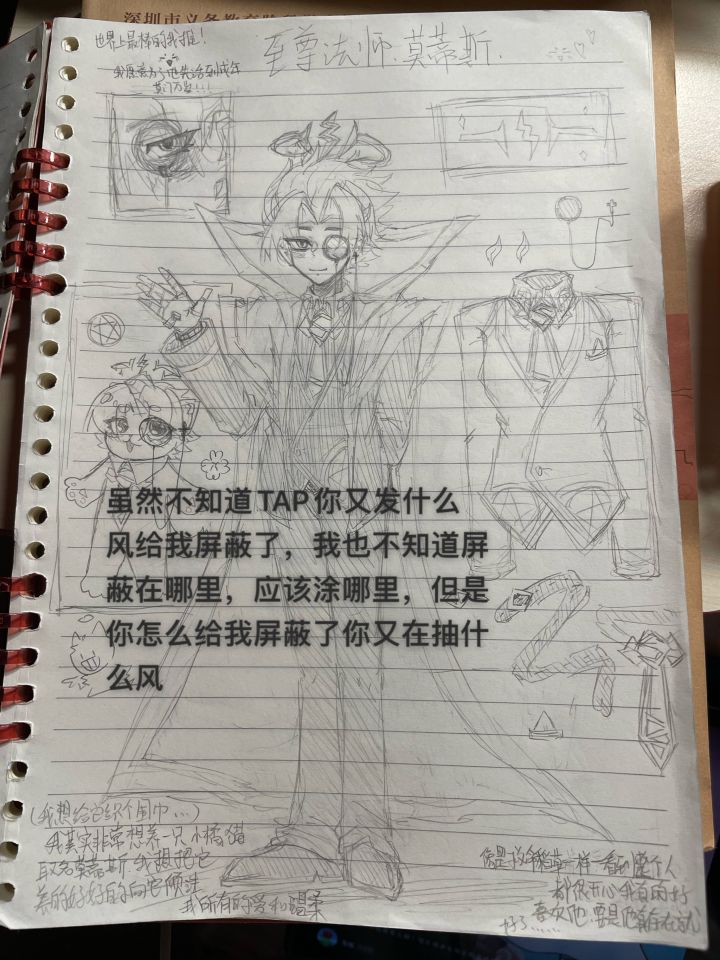 深圳市义务教育
世界上最棒的我推！
至尊法师.莫蒂斯.
我愿意为了他先活到成年
莫门万岁!!!
虽然不知道TAP你又发什么
风给我屏蔽了，我也不知道屏
蔽在哪里，应该涂哪里，但是
你怎么给我屏蔽了你又在抽什
么风
(我想给它织个围巾...)
我其实非常想养一只小橘猫
取名莫蒂斯.我想把它
养的好好的向它倾注
我所有的爱和温柔
一样一看到
整个人
都很开心我真的好
喜欢他.要是他真存在就
好了......